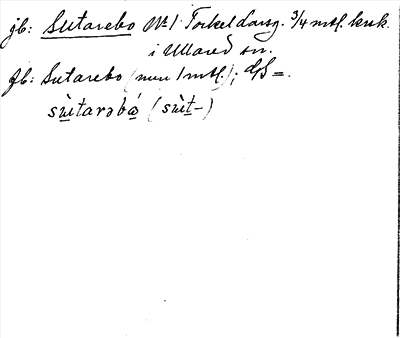 jb: Sutarebo № 1 Torkeldarsg. 3/4 mtl. kruk.
i Ullared sn.
Jb: Sutarebo (nuv 1 mtl.); d/S =.
sùtarəbǻ (sùt-)